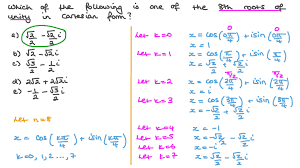 Which of the following is one of the 8th roots of
unity in cartesian form?
a) √2/2 - √2/2 i
b) √2 - √2 i
c) √3/2 - 1/2 i
d) 2√2 + 2√2 i
e) -1/2 - √3/2 i
Let n=8
x = cos(kπ/4) + isin(kπ/4)
k=0, 1, 2 ..., 7
Let k=0
x = cos(0π/4) + isin(0π/4)
x = 1
Let k=1
x = cos(π/4) + isin(π/4)
x = √2/2 + √2/2 i
Let k=2
x = cos(2π/4) + isin(2π/4)
x = i
Let k=3
x = cos(3π/4) + isin(3π/4)
x = -√2/2 + √2/2 i
Let k=4
x = -1
Let k=5
x = -√2/2 - √2/2 i
Let k=6
x = -i
Let k=7
x = √2/2 - √2/2 i